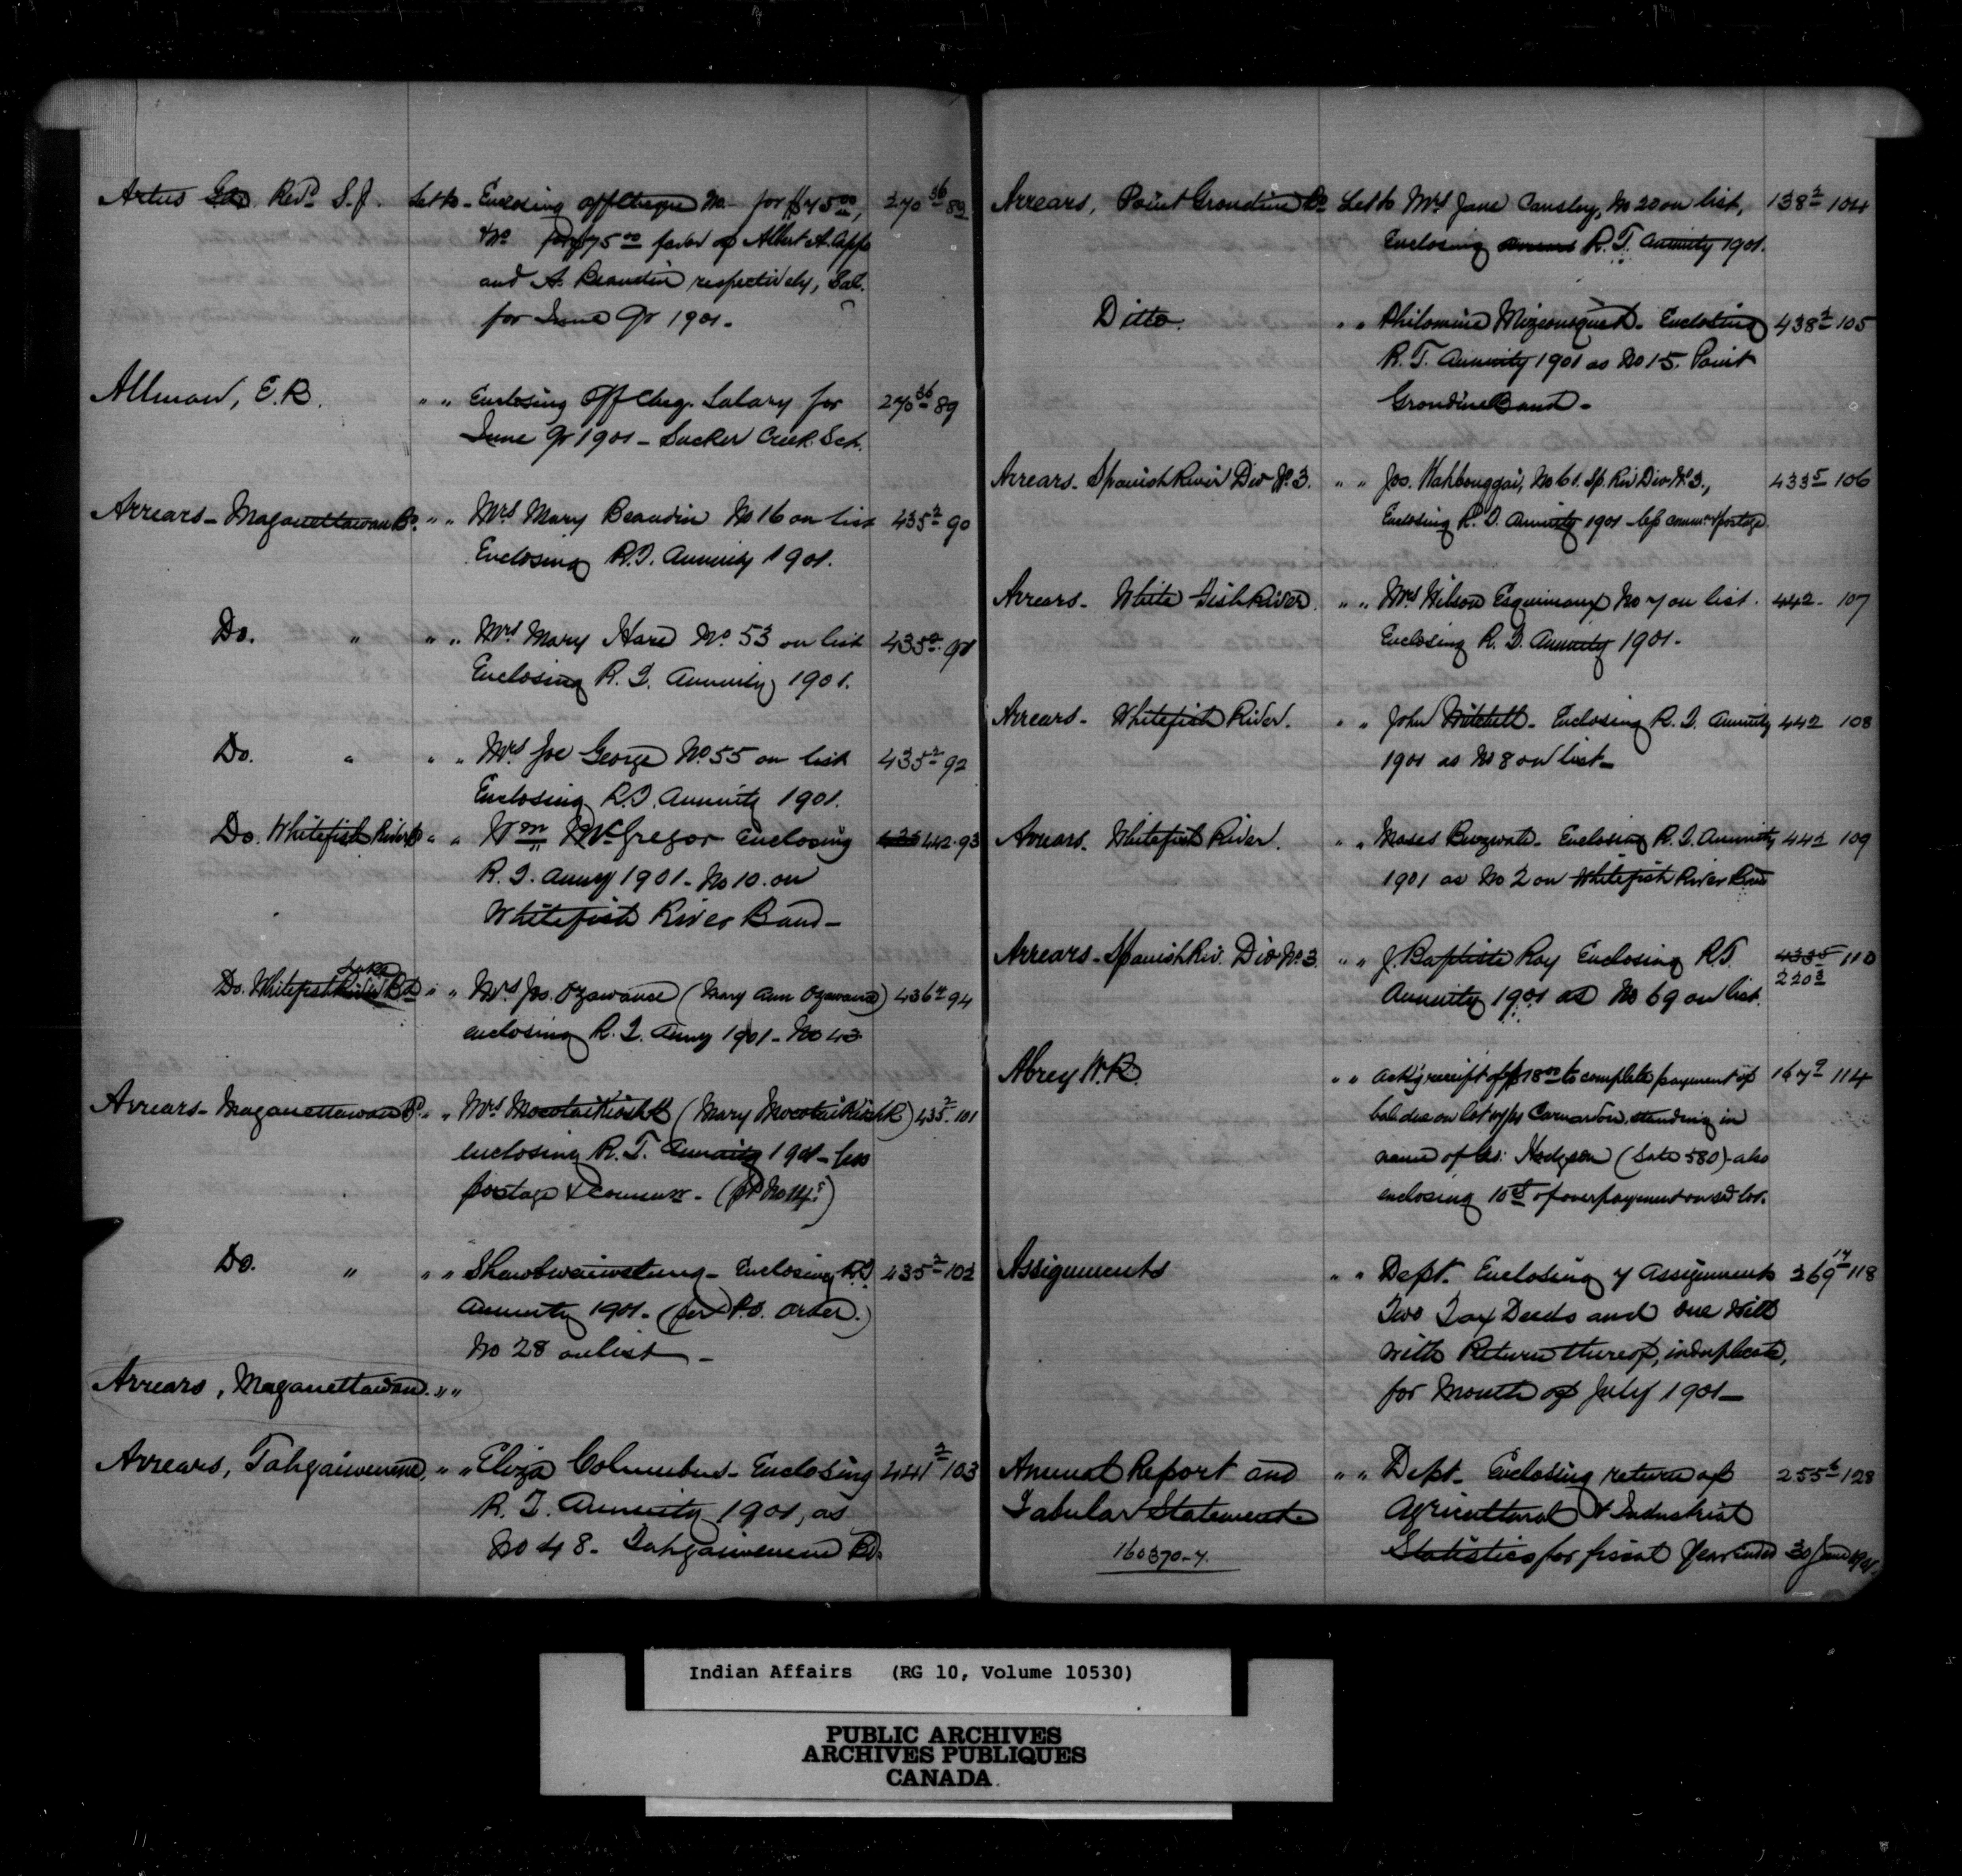 Artus Geo. Revd. S.J. Let to - Enclosing off Cheque No. - for $75.00, 270 36 89
& No for $75.00 favor of Albert A. App
and A. Beaudin respectively, Sal.
for June Qr 1901.
Allman, E.R. " " Enclosing Off Chq. Salary for 270 36 89
June Qr 1901 - Sucker Creek Sch.
Arrears - Maganettawan Bd. " " Mrs Mary Beaudin No 16 on list 435 2 90
Enclosing R.T. Annuity 1901.
Do. " " " Mrs Mary Hare No. 53 on list 435 2 91
Enclosing R.T. Annuity 1901.
Do. " " " Mrs Joe George No. 55 on list 435 2 92
Enclosing R.T. Annuity 1901.
Do. Whitefish River Bd " " Wm McGregor Enclosing 435 442 . 93
R.T. Anny 1901 - No 10. on
Whitefish River Band -
Do. Whitefish River Lake Bd " " Mrs Jos. Ozawance (Mary Ann Ozawance) 436 94
enclosing R.T. Anny 1901 - No 43.
Arrears - Maganettawan Bd. " " Mrs (Mary) 435 2 101
enclosing R.T. Annuity 1901 - less
postage & commn -
Do. " " " Enclosing R.T. 435 2 102
Annuity 1901 - (per P.O. order.)
No 28 on list -
Arrears, Maganettawan. " "
Arrears, Tahgaiwenene, " " Eliza Columbus - Enclosing 441 2 103
R.T. Annuity 1901, as
No 48 - Tahgaiwenene Bd.
Arrears, Point Grondine Bd Let to Mrs Jane Cansley, No 20 on list, 138 2 104
Enclosing R.T. Annuity 1901.
Ditto " " Philomine - Enclosing 438 2 105
R.T. Annuity 1901 as No 15. Point
Grondine Band -
Arrears - Spanish River Div No. 3. " " Jos. Kahbonggai, No 61. Sp. Riv Div No. 3., 433 5 106
Enclosing R.T. Annuity 1901 - less commn & postage.
Arrears - White Fish River. " " Mrs Wilson Esquimaux No 7 on list. 442 - 107
Enclosing R.T. Annuity 1901 -
Arrears - Whitefish River. " " John Mitchell - Enclosing R.T. Annuity 442 108
1901 as No 8 on list -
Arrears - Whitefish River. " " Moses - Enclosing R.T. Annuity 442 109
1901 as No 2 on Whitefish River Band
Arrears - Spanish Riv. Div No. 3 " " J. Baptiste Roy Enclosing R.T. 433 5 110
Annuity 1901 as No 69 on list. 220 3
Abrey W.R. " " Ack'g receipt of $18.00 to complete payment of 167 9 114
bal due on lot Carnarvon, standing in
name of Hodgson (Sale 580) - also
enclosing 10 cts of overpayment on sd lot.
Assignments " " Dept - Enclosing 7 Assignments 269 14 118
Two Tax Deeds and one Will
with Return thereof, in duplicate,
for Month of July 1901 -
Annual Report and " " Dept - Enclosing return of 255 6 128
Tabular Statement Agricultural & Industrial
160370-7. Statistics for fiscal Year ended 30 June 1901.
Indian Affairs (RG 10, Volume 10530)
PUBLIC ARCHIVES
ARCHIVES PUBLIQUES
CANADA